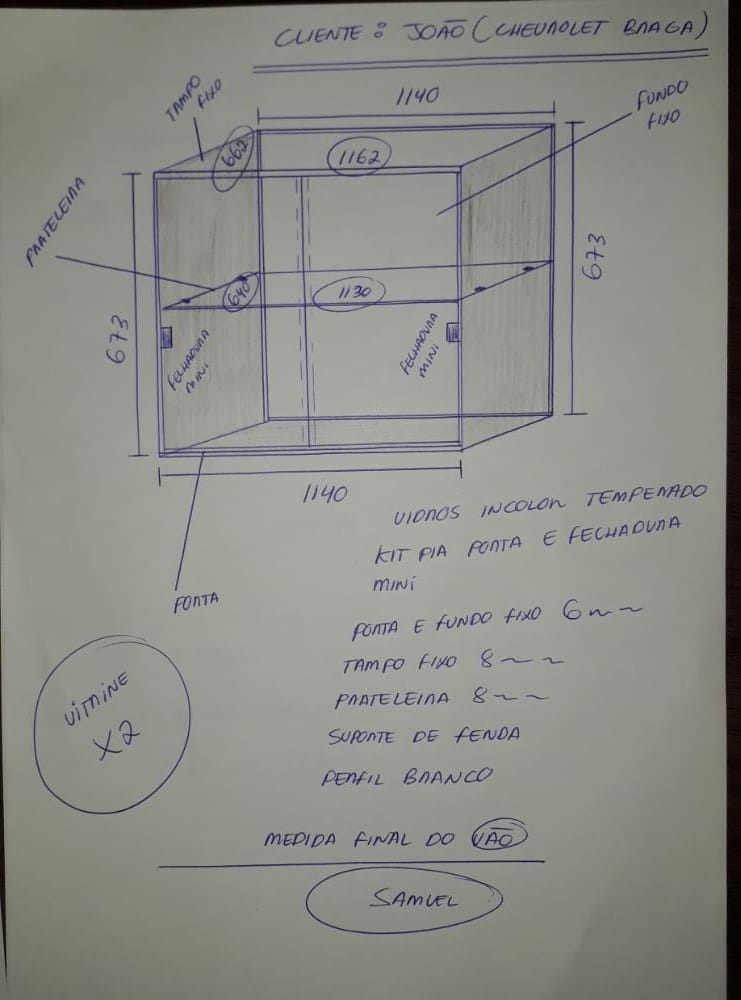 CLIENTE: JOÃO (CHEVROLET BRAGA)
TAMPO
FIXO
1140
FUNDO
FIXO
662
1162
PRATELEIRA
640
1130
673
673
FECHADURA
MINI
FECHADURA
MINI
1140
VIDROS INCOLOR TEMPERADO
KIT PIA PORTA E FECHADURA
MINI
PORTA
PORTA E FUNDO FIXO 6mm
TAMPO FIXO 8mm
PRATELEIRA 8mm
VITRINE
X2
SUPORTE DE FENDA
PERFIL BRANCO
MEDIDA FINAL DO VÃO
SAMUEL